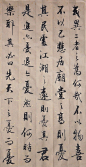 或異二者之為何哉不以物喜
不以己悲居廟堂之高則憂
其民處江湖之遠則憂其君
是進亦憂退亦憂然則何時而
樂耶其必曰先天下之憂而憂